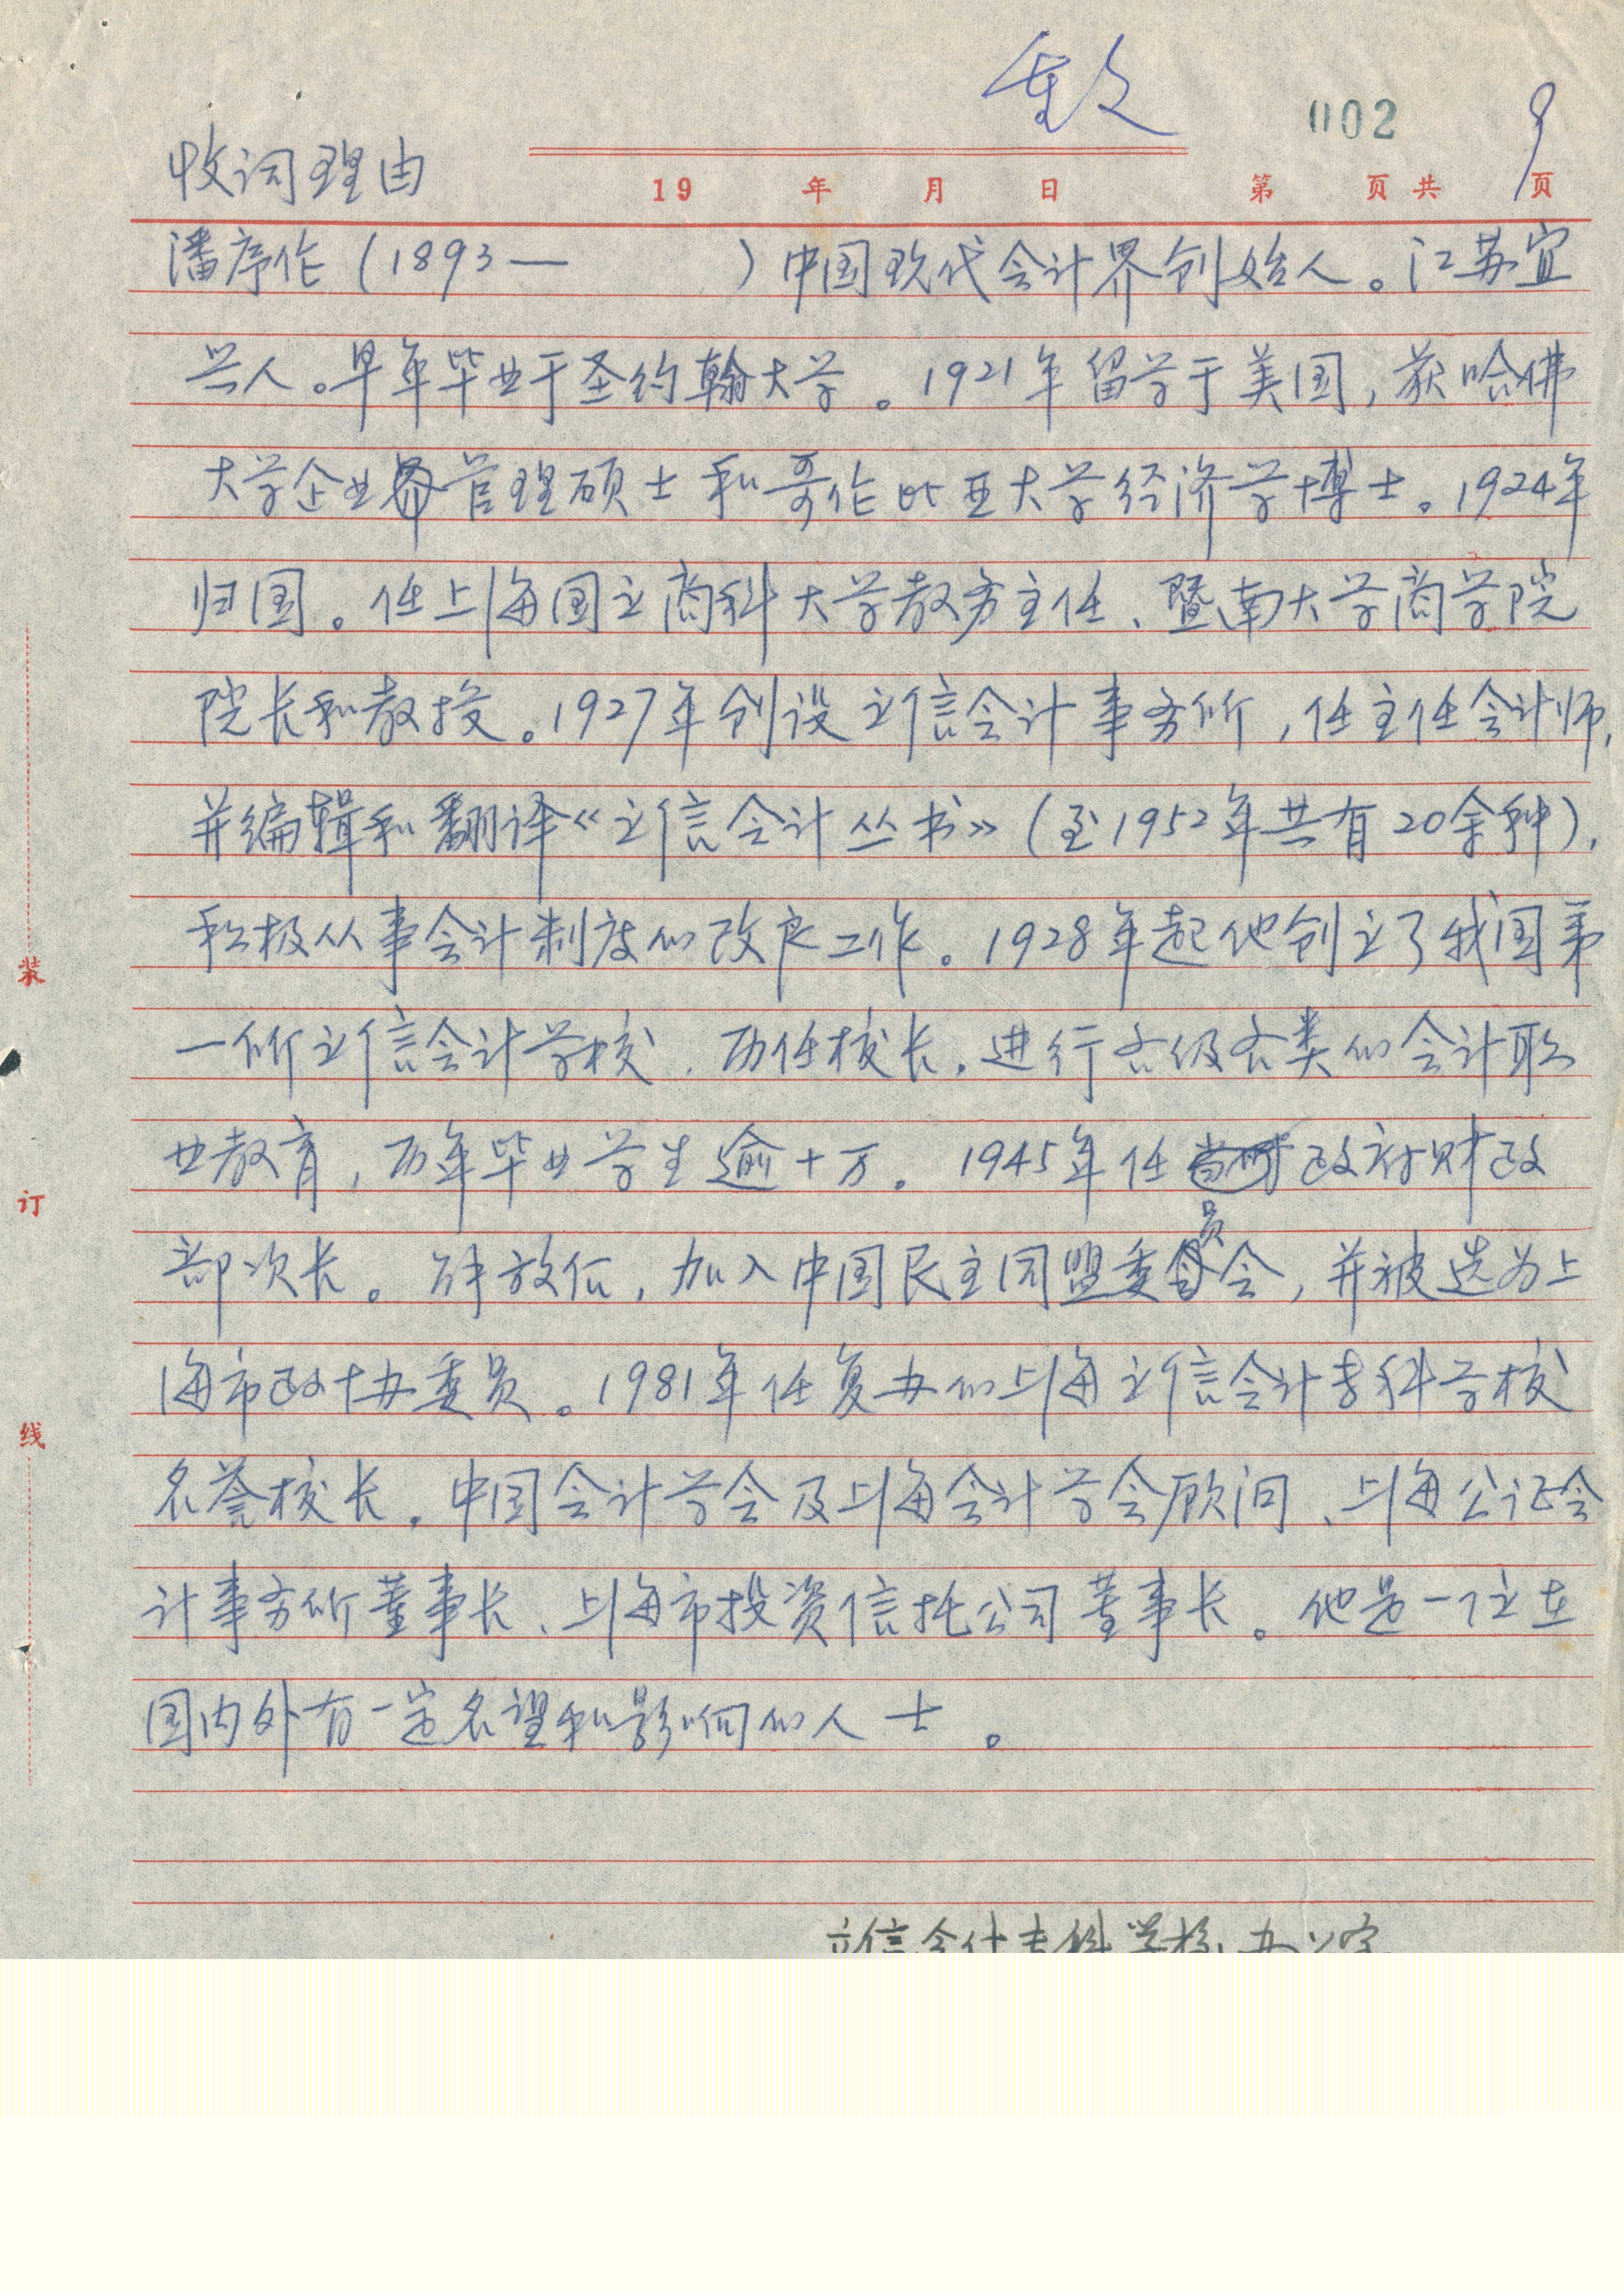 重文
002 9
收词理由
19 年 月 日 第 页共 页
潘序伦（1893— ）中国现代会计界创始人。江苏宜
兴人。早年毕业于圣约翰大学。1921年留学于美国，获哈佛
大学企业管理硕士和哥伦比亚大学经济学博士。1924年
归国。任上海国立商科大学教务主任、暨南大学商学院
院长和教授。1927年创设立信会计事务所，任主任会计师，
并编辑和翻译《立信会计丛书》（至1952年共有20余种），
积极从事会计制度的改良工作。1928年起他创立了我国第
一所立信会计学校，历任校长，进行各级各类的会计职
业教育，历年毕业学生逾十万。1945年任政府财政
部次长。解放后，加入中国民主同盟委员会，并被选为上
海市政协委员。1981年任复办的上海立信会计专科学校
名誉校长，中国会计学会及上海会计学会顾问、上海公证会
计事务所董事长、上海市投资信托公司董事长。他是一位在
国内外有一定名望和影响的人士。
立信会计专科学校办公室
装
订
线